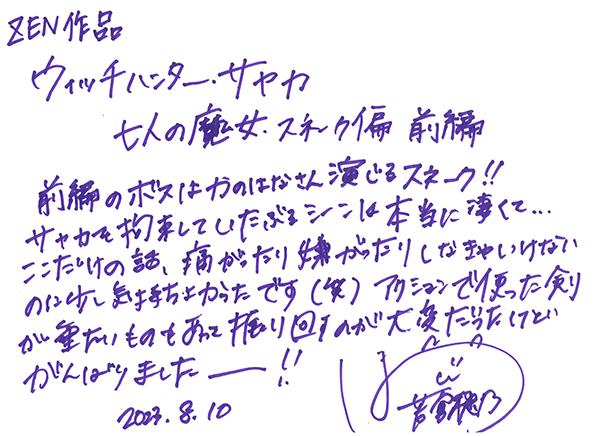 ZEN作品
ウィッチハンター・サヤカ
七人の魔女・スネーク偏 前編
前編のボスはかのはなさん演じるスネーク!!
サヤカを拘束していたぶるシーンは本当に凄くて…
ここだけの話、痛がったり嫌がったりしなきゃいけない
のに少し気持ちよかったです(笑) アクションで使った剣
が重たいものもあって振り回すのが大変だったけど
がんばりましたー!!
2023.8.10